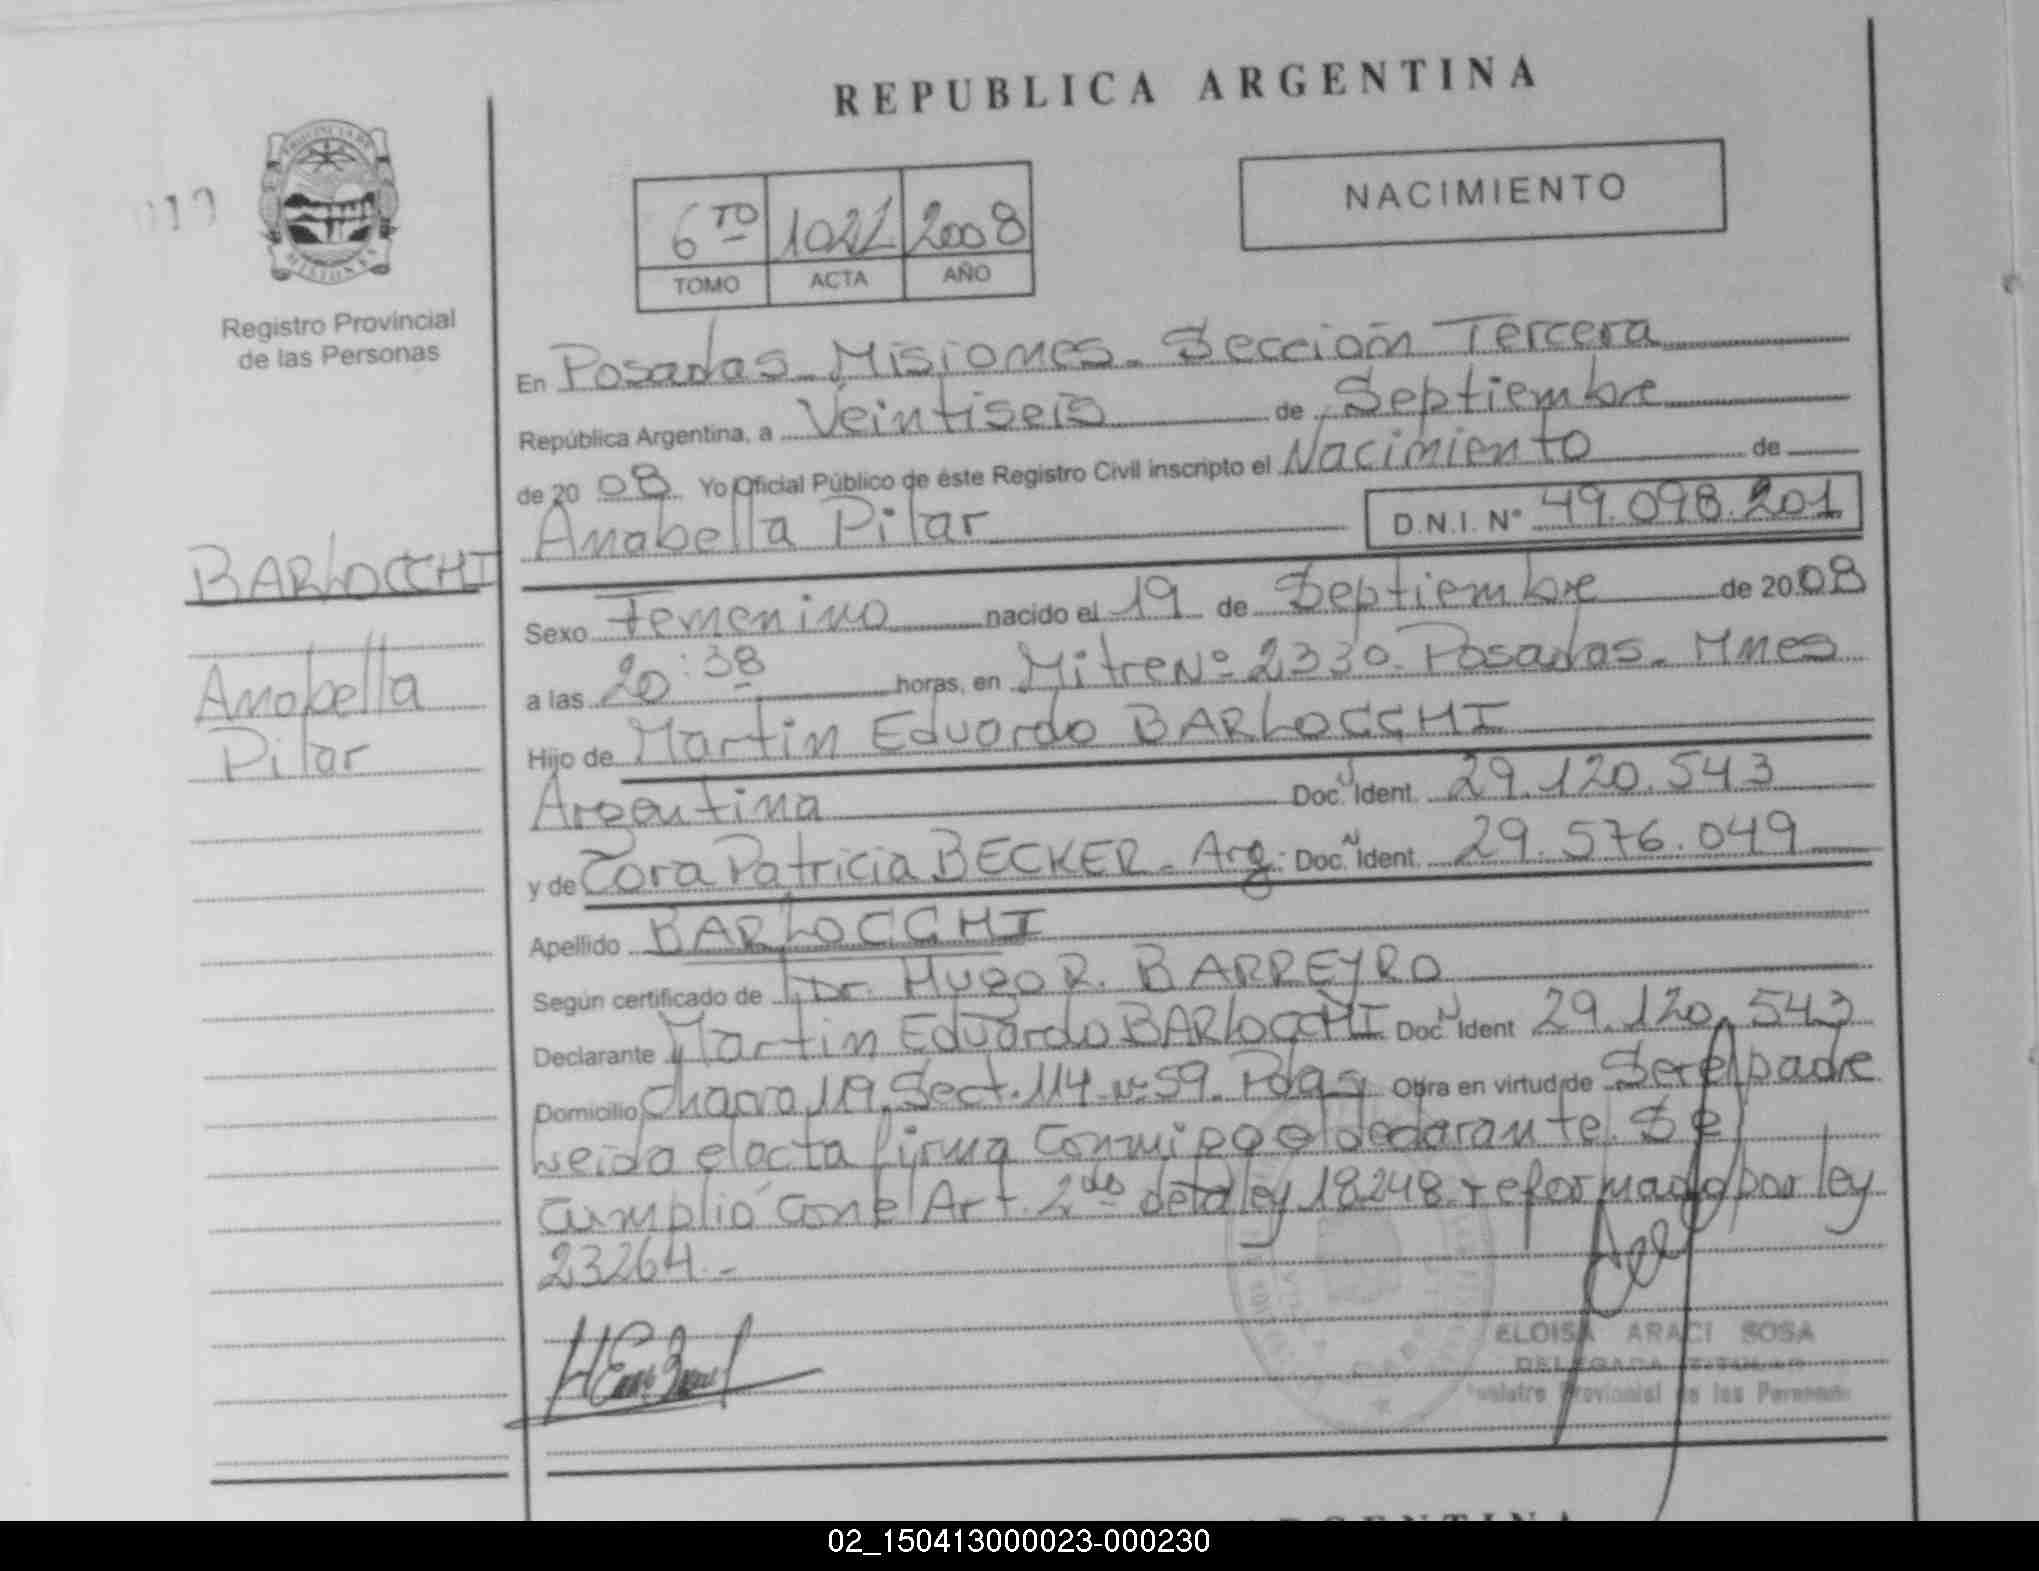 REPUBLICA ARGENTINA
PROVINCIA DE
MISIONES
Registro Provincial
de las Personas
6TO 1021 2008
TOMO ACTA AÑO
NACIMIENTO
En Posadas - Misiones - Sección Tercera
República Argentina, a Veintiseis de Septiembre
de 2008 Yo Oficial Público de éste Registro Civil inscripto el Nacimiento de
Anabella Pilar D.N.I. N° 49.098.201
BARLOCCHI
Anabella
Pilar
Sexo Femenino nacido el 19 de Septiembre de 2008
a las 20:38 horas, en Mitre Nº 2330. Posadas - Mnes
Hijo de Martin Eduardo BARLOCCHI
Argentina Doc. N Ident. 29.120.543
y de Cora Patricia BECKER - Arg. Doc. N Ident. 29.576.049
Apellido BARLOCCHI
Según certificado de Dr. Hugo R. BARREYRO
Declarante Martin Eduardo BARLOCCHI Doc. N Ident 29.120.543
Domicilio Chacra 119. Sect. 114 - Nº 59. Pdas Obra en virtud de Ser el padre
Leida el acta firma conmigo el declarante. Se
cumplió con el Art. 2do de la ley 18248 reformado por ley
23264.-
ELOISA ARACI SOSA
DELEGADA TITULAR
Registro Provincial de las Personas
ARGENTINA
02_150413000023-000230